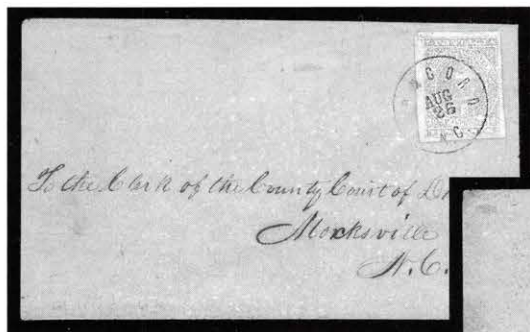 AUG
26
N.C.
To the Clerk of the County Court of
Mocksville
N.C.